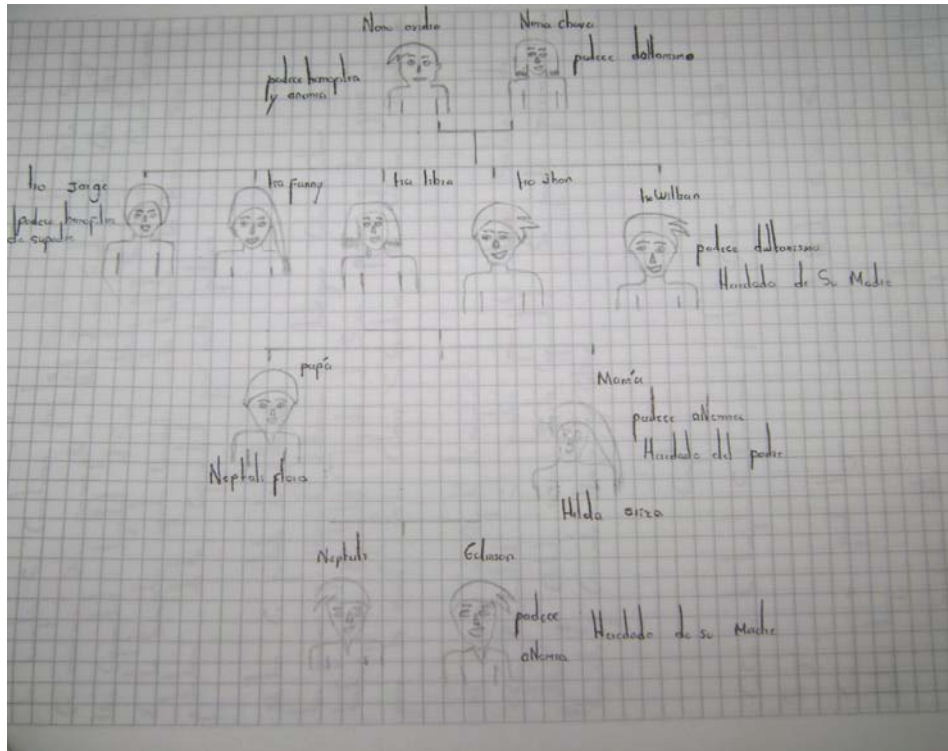 Nono ovidio
Nona chava
padece hemoplia
y anemia
padece daltonismo
tio Jorge
padece hemoplia
de su padre
tia fanny
tia libia
tio Jhon
tio Wilban
padece daltonismo
Heredado de Su Madre
papá
Neptali floro
Mamá
padece aNemia
Heredado del padre
Hilda ariza
Neptali
Edinson
padece
aNemia
Heredado de su Madre